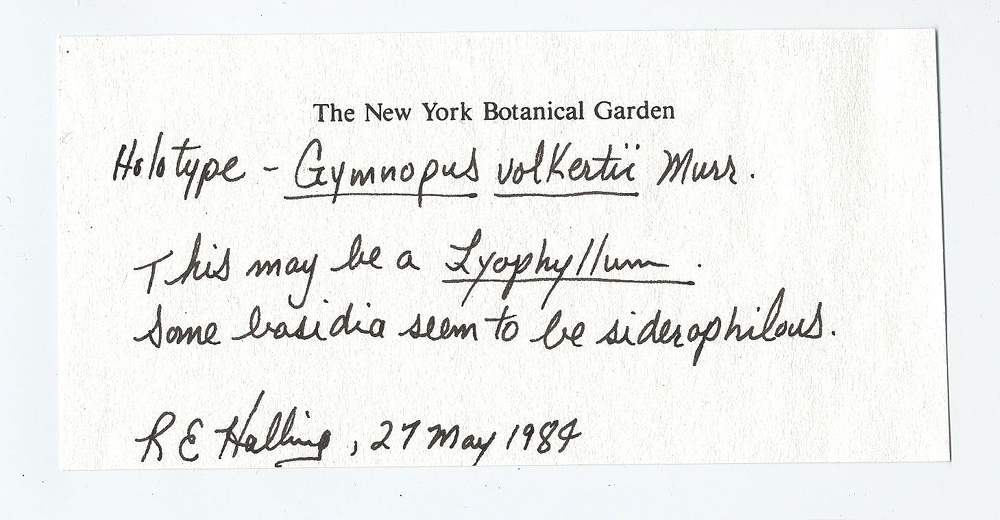 The New York Botanical Garden
Holotype - Gymnopus volkertii Murr.
This may be a Lyophyllum.
Some basidia seem to be siderophilous.
R E Halling, 27 May 1984